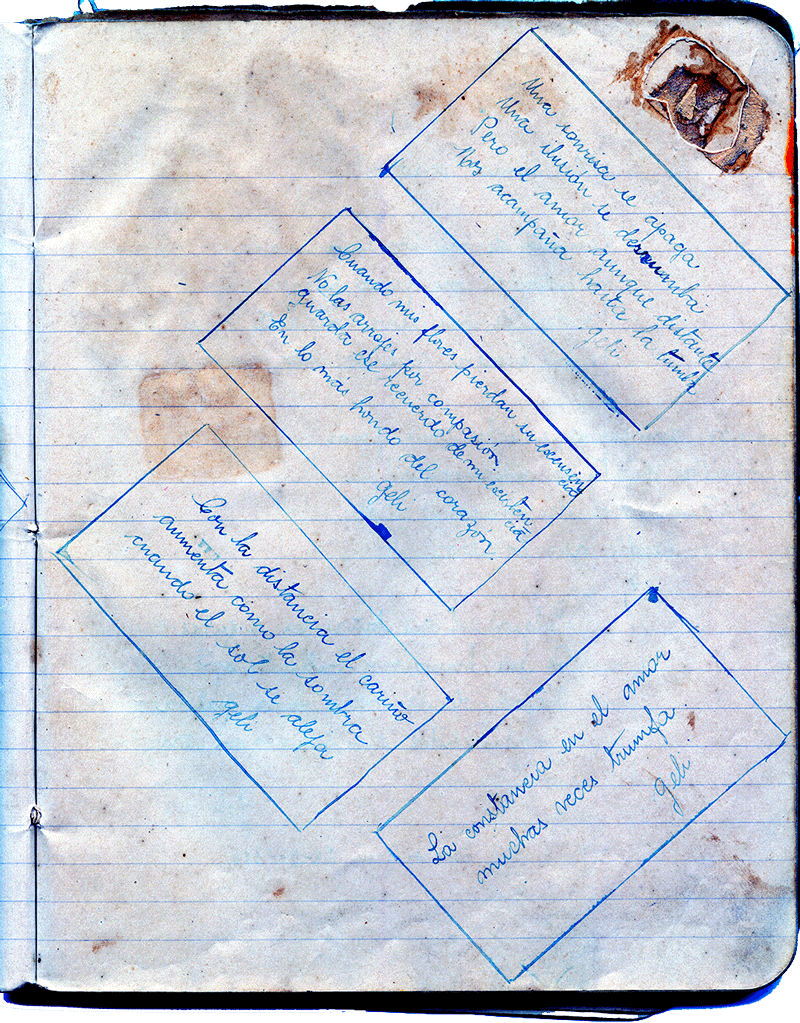 Una sonrisa se apaga
Una ilusión se derrumba
Pero el amor aunque distante
Nos acampaña hasta la tumba
geli
Cuando mis flores pierdan su esensia
No las arrojes por compasión
guarda ese recuerdo de mi existencia
En lo más hondo del corazón.
geli
Con la distancia el cariño
aumenta como la sombra
cuando el sol se aleja
geli
La constancia en el amor
muchas veces triumfa
geli